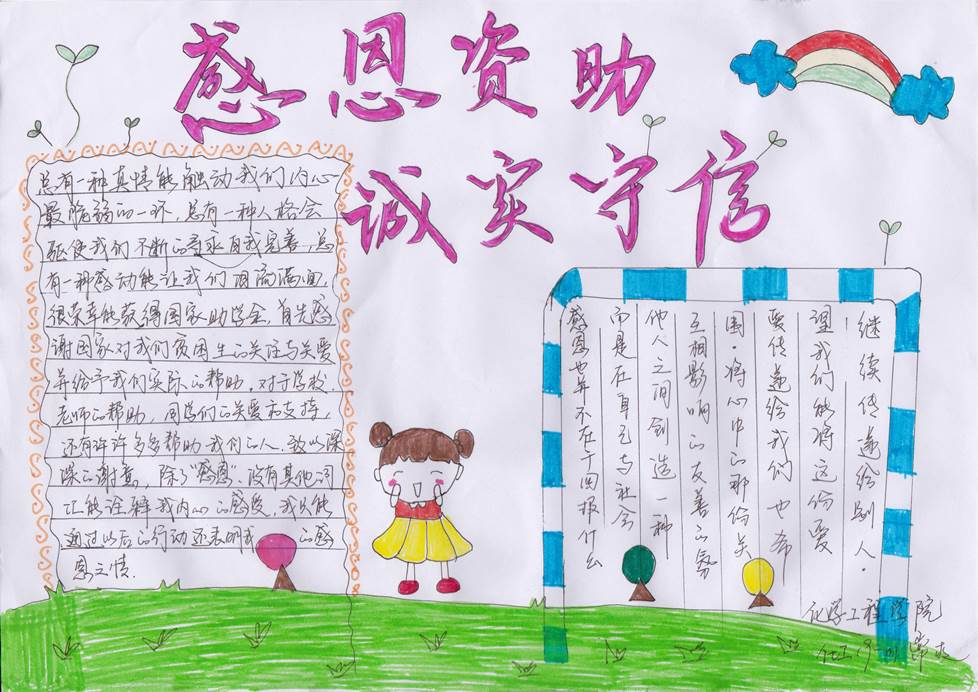 感恩资助
诚实守信
总有一种真情能触动我们内心
最脆弱的一环，总有一种人格会
驱使我们不断的寻求自我完善，总
有一种感动能让我们泪流满面.
很荣幸能获得国家助学金，首先感
谢国家对我们贫困生的关注与关爱
并给予我们实际的帮助，对于学校.
老师的帮助，同学们的关爱和支持，
还有许许多多帮助我们的人.致以深
深的谢意，除了“感恩”没有其他词
汇能诠释我内心的感受，我只能
通过以后的行动还表明我 的感
恩之情.
感恩也并不在于回报什么
而是在自己与社会
他人之间创造一种
互相影响的友善的氛
围.将心中的那份关
爱传递给我们也希
望我们能将这份爱
继续传递给别人.
化学工程学院
化工19-